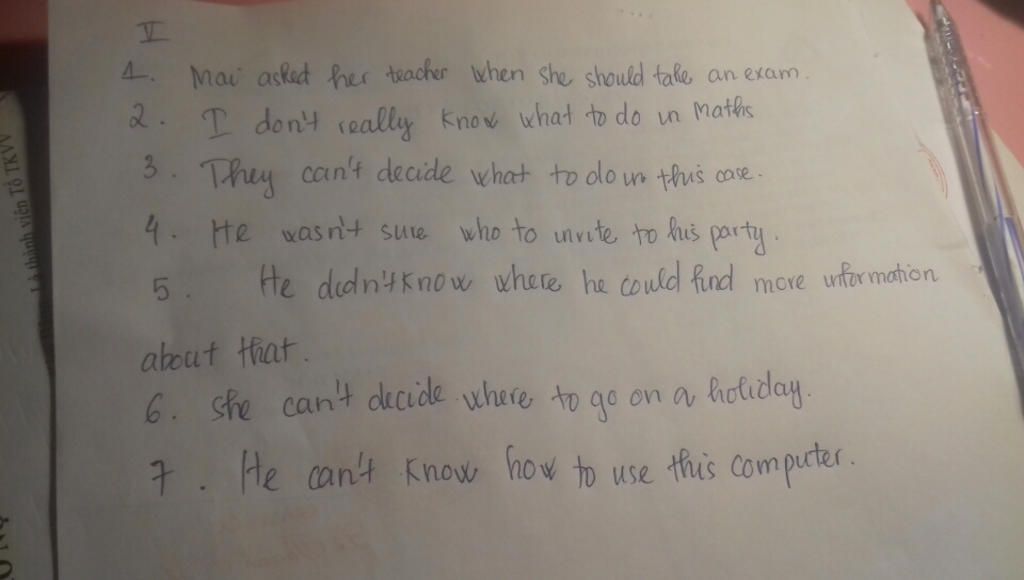 V
1. Mai asked her teacher when she should take an exam.
2. I don't really know what to do in Maths
3. They can't decide what to do in this case.
4. He wasn't sure who to invite to his party.
5. He didn't know where he could find more information
about that.
6. She can't decide where to go on a holiday.
7. He can't know how to use this computer.
thành viên Tổ TKVV